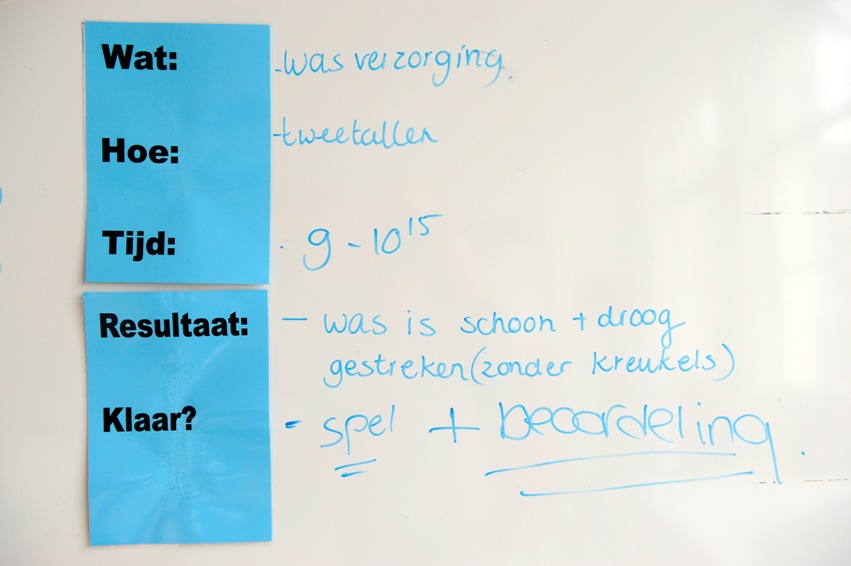 Wat: - was verzorging
Hoe: - tweetallen
Tijd: - 9 - 10¹⁵
Resultaat: - was is schoon + droog
gestreken (zonder kreukels)
Klaar? - spel + beoordeling.